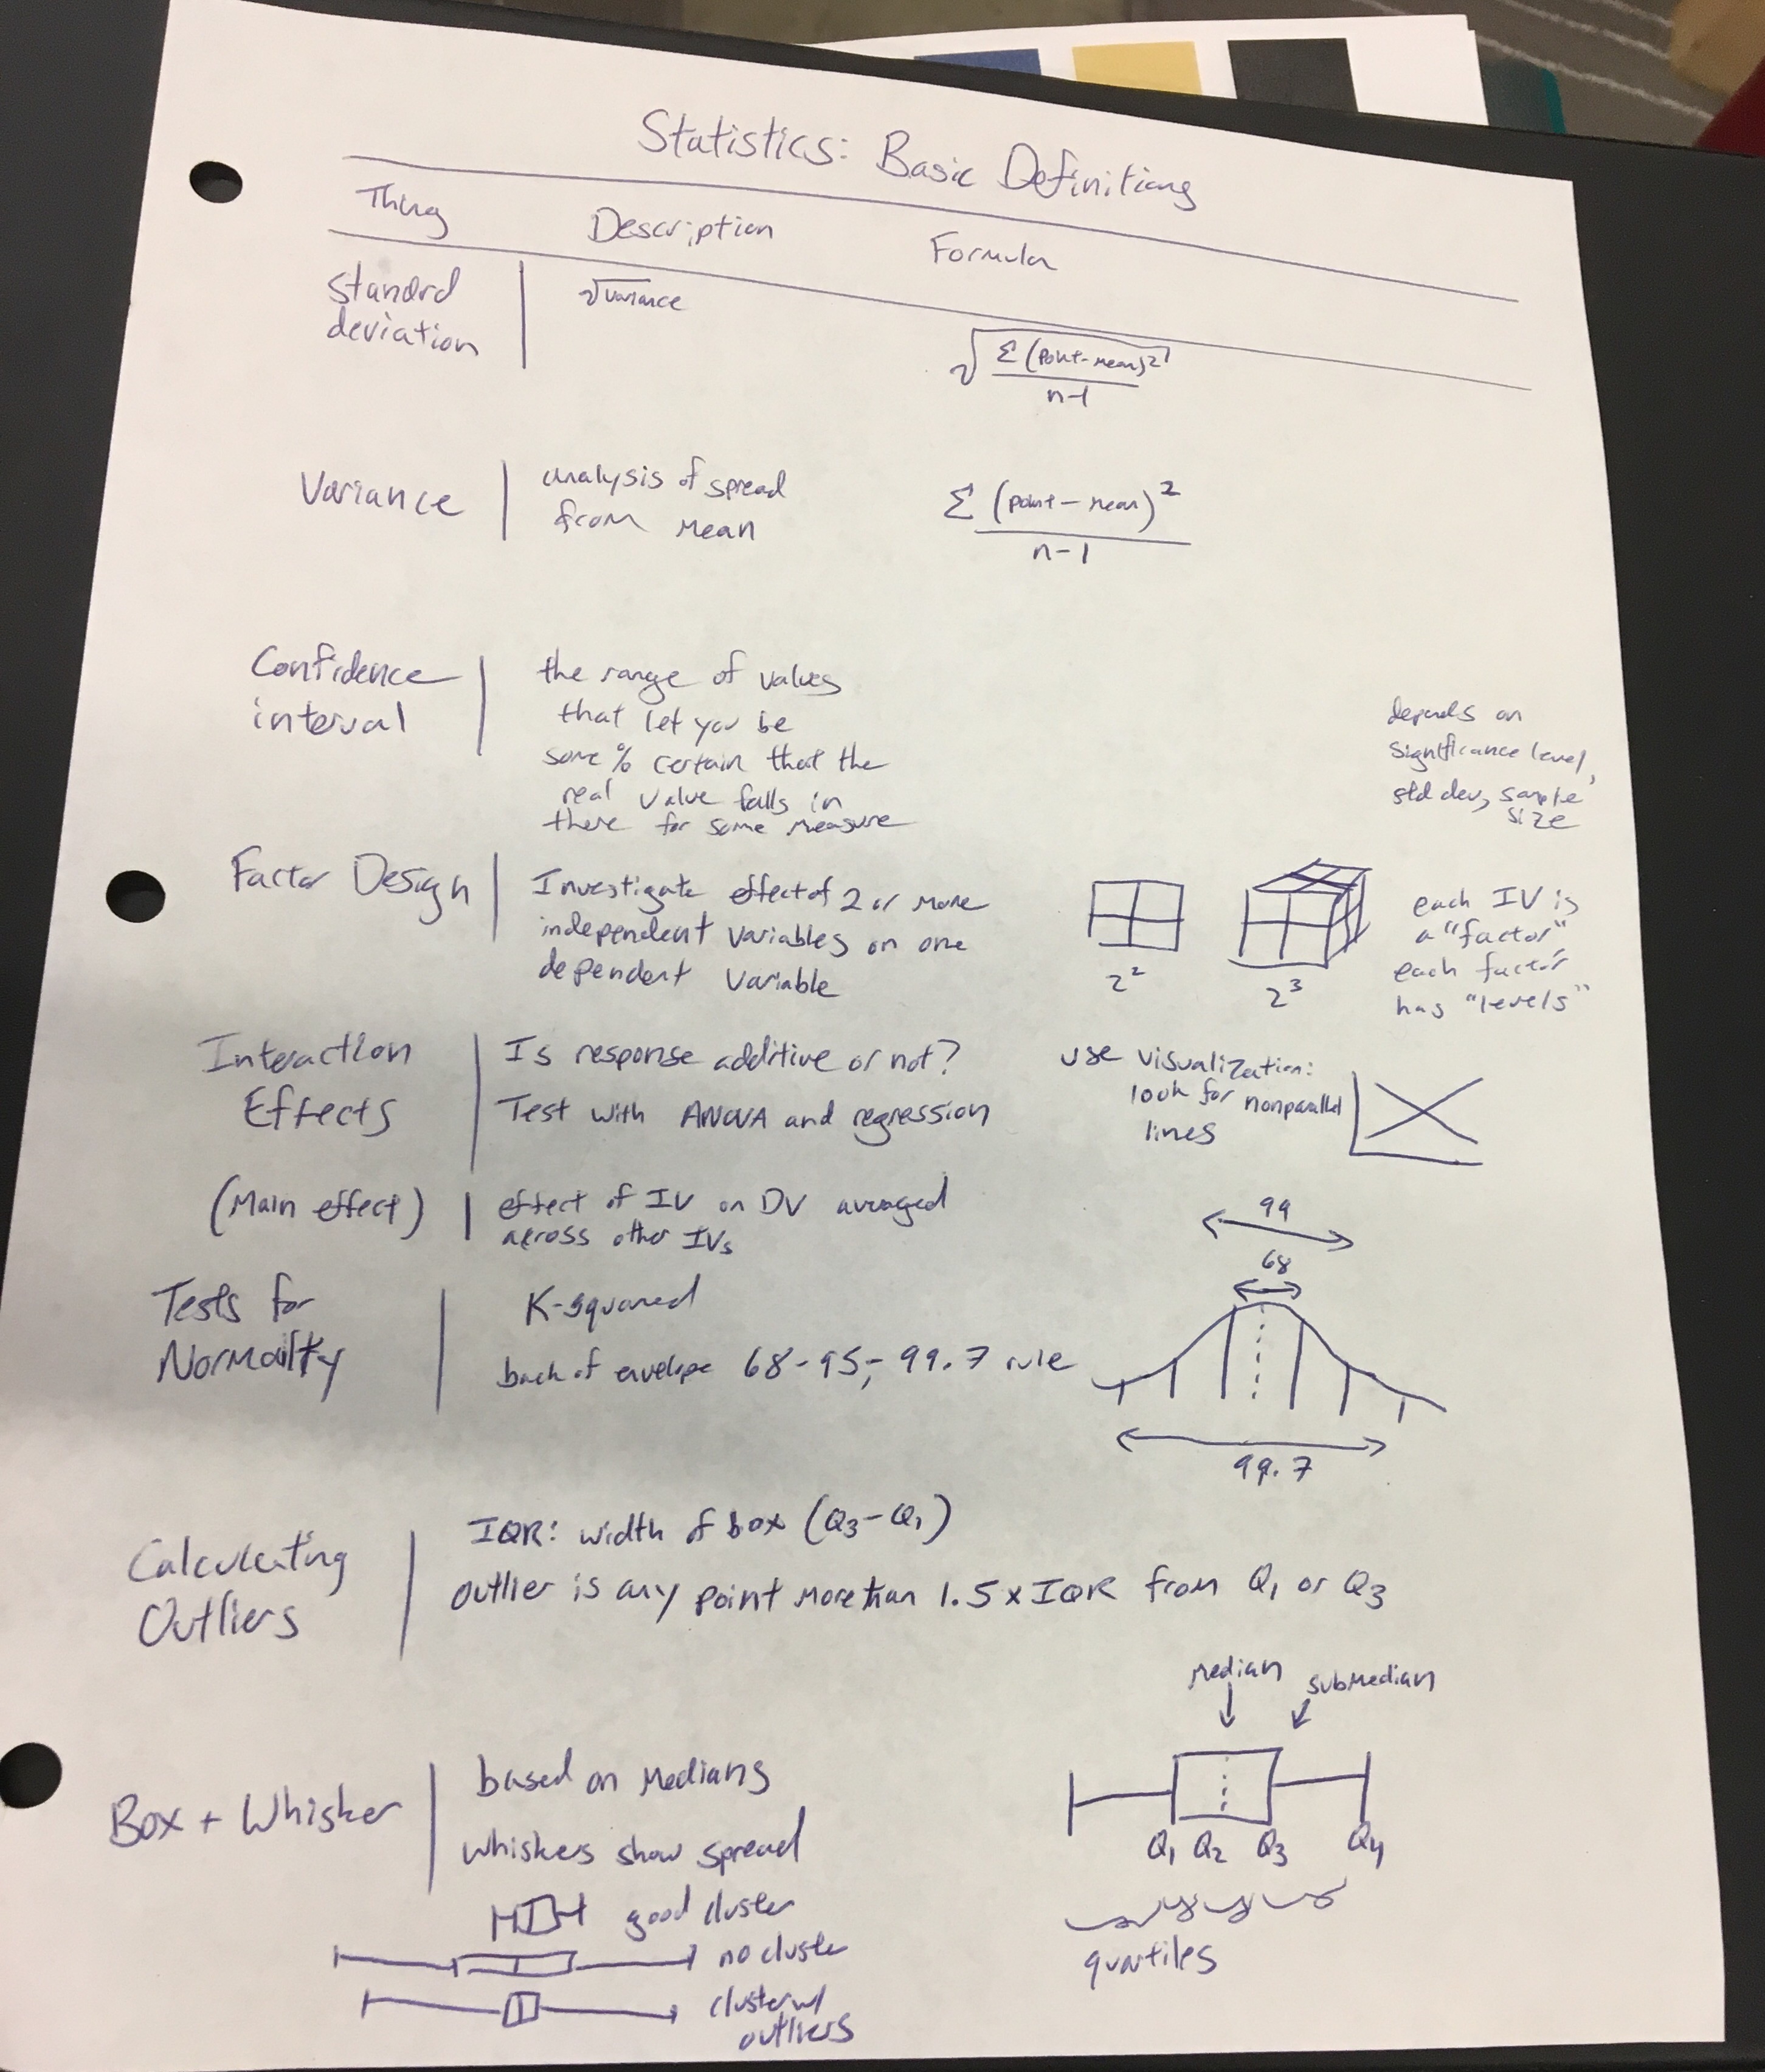 Statistics: Basic Definitions
Thing Description Formula
standard deviation
√variance
√(Σ(point-mean)²/n-1)
Variance
analysis of spread
from mean
Σ(point-mean)²
n-1
Confidence
interval
the range of values
that let you be
some % certain that the
real value falls in
there for some measure
depends on
significance level,
std dev, sample
size
Factor Design
Investigate effect of 2 or more
independent variables on one
dependent variable
2²
2³
each IV is
a "factor",
each factor
has "levels"
Interaction
Effects
Is response additive or not?
Test with ANOVA and regression
use visualization:
look for nonparallel
lines
(Main effect)
effect of IV on DV averaged
across other IVs
Tests for
Normailty
K-squared
back of envelope 68-95-99.7 rule
99
68
99.7
Calculating
Outliers
IQR: width of box (Q3-Q1)
outlier is any point more than 1.5 x IQR from Q1 or Q3
Box + Whisker
based on medians
whiskers show spread
good cluster
no cluster
cluster w/
outliers
median
submedian
Q1 Q2 Q3 Q4
quartiles